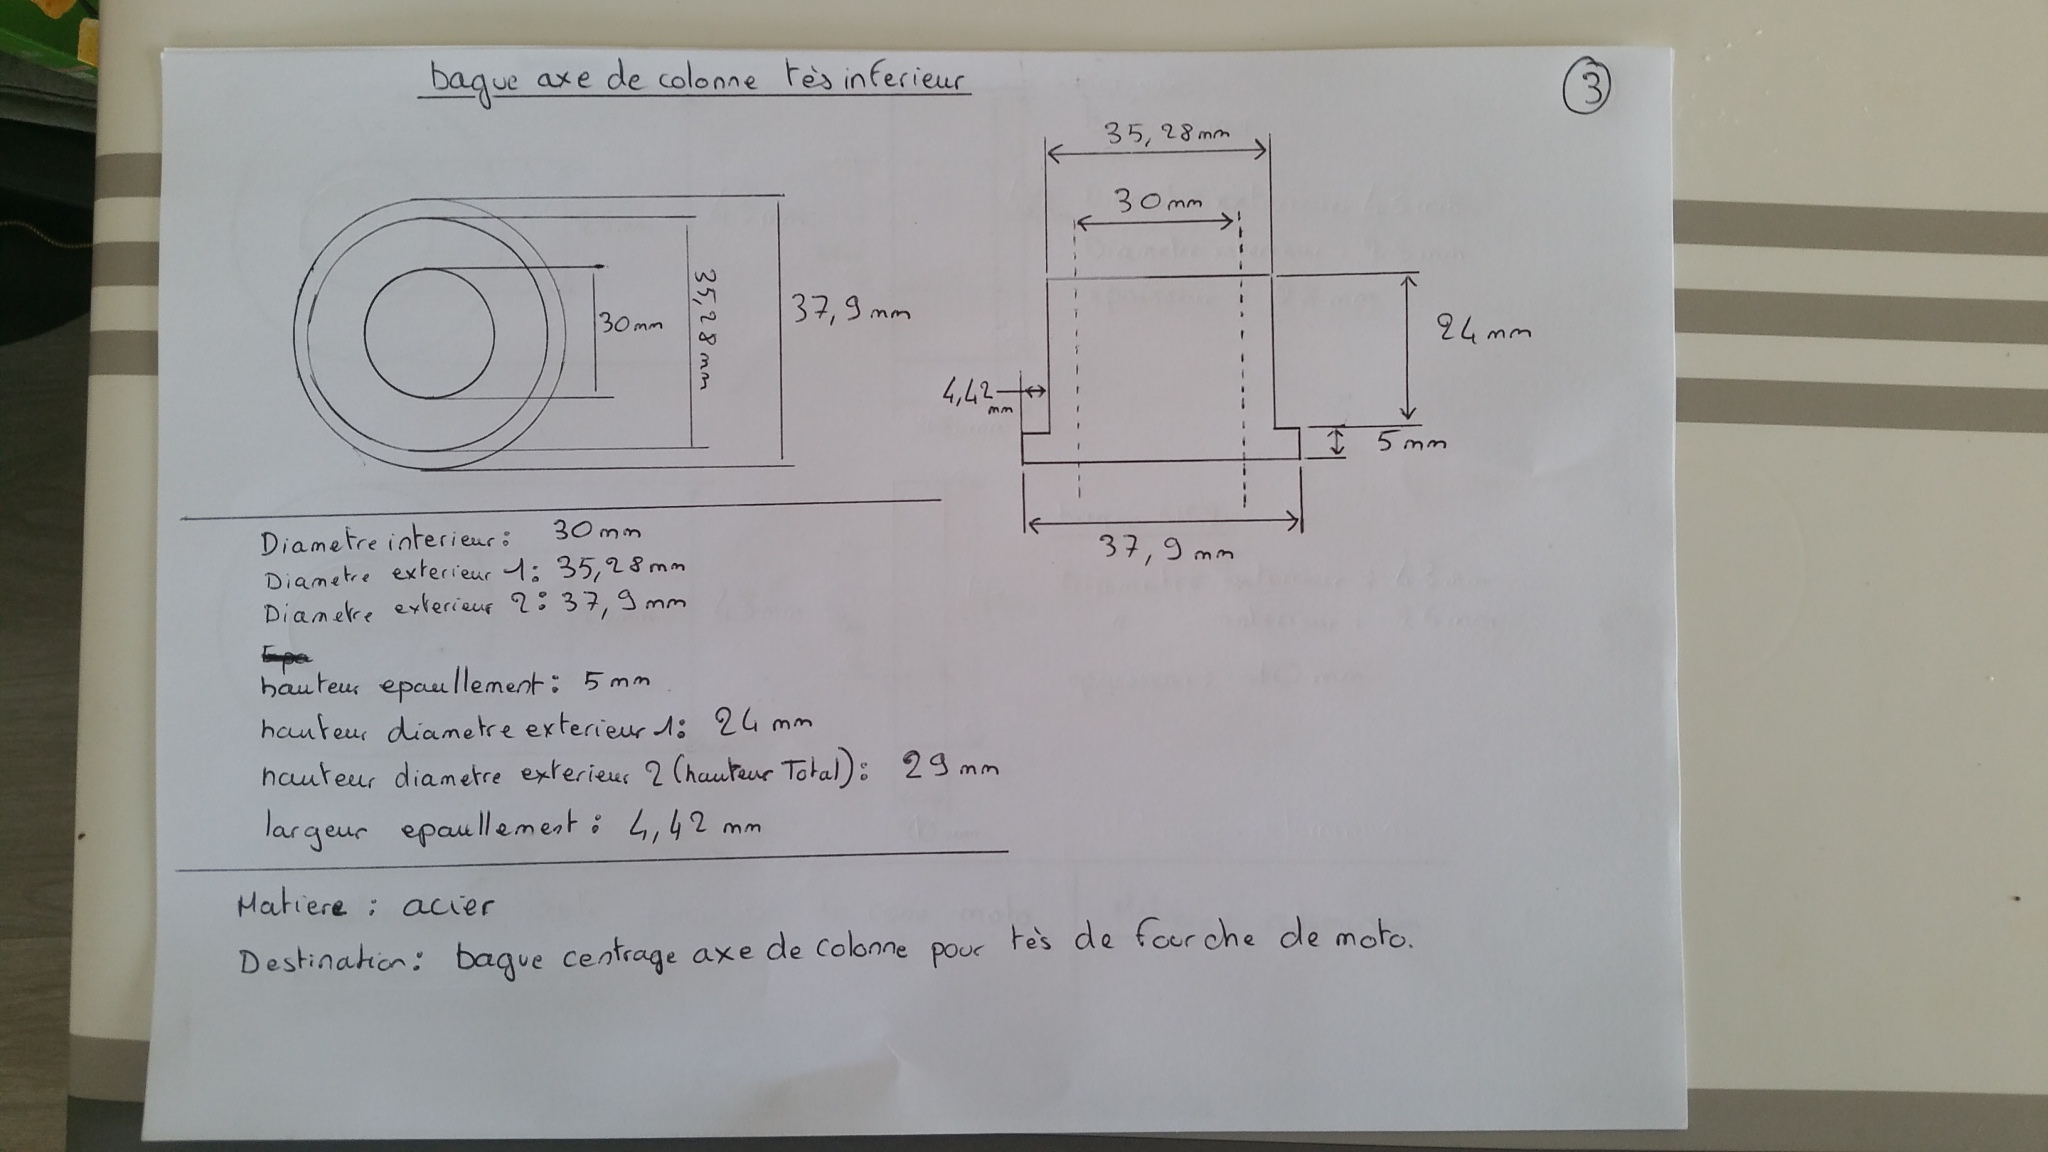 bague axe de colonne tès inferieur
3
35,28mm
30mm
30mm
35,28mm
37,9mm
24mm
4,42
mm
5mm
37,9mm
Diametre interieur: 30mm
Diametre exterieur 1: 35,28mm
Diametre exterieur 2: 37,9mm
hauteur epaullement: 5mm
hauteur diametre exterieur 1: 24 mm
hauteur diametre exterieur 2 (hauteur Total): 29mm
largeur epaullement: 4,42 mm
Matiere: acier
Destination: bague centrage axe de colonne pour tès de fourche de moto.